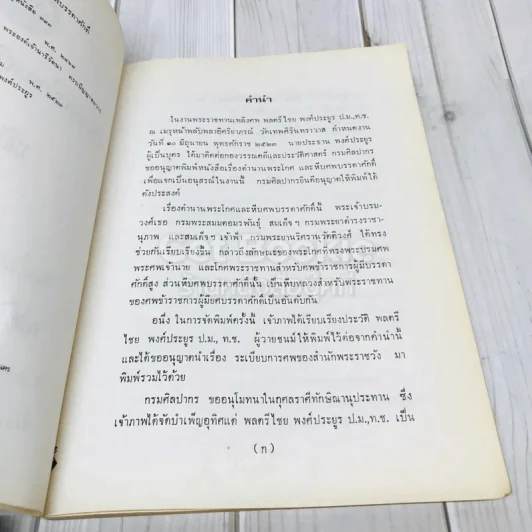 พ.ศ. ๒๔๖๘
พ.ศ. ๒๕๒๓
คำนำ
ในงานพระราชทานเพลิงศพ พลตรีไชย พงศ์ประยูร ป.ม.,ท.ช.
ณ เมรุหน้าพลับพลาอิศริยาภรณ์ วัดเทพศิรินทราวาส กำหนดงาน
วันที่ ๑๐ มิถุนายน พุทธศักราช ๒๕๒๓ นายประธาน พงศ์ประยูร
ผู้เป็นบุตร ได้มาติดต่อกองวรรณคดีและประวัติศาสตร์ กรมศิลปากร
ขออนุญาตพิมพ์หนังสือเรื่องตำนานพระโกศ และหีบศพบรรดาศักดิ์
เพื่อแจกเป็นอนุสรณ์ในงานนี้ กรมศิลปากรยินดีอนุญาตให้พิมพ์ได้
ดังประสงค์
เรื่องตำนานพระโกศและหีบศพบรรดาศักดิ์นี้ พระเจ้าบรมวงศ์เธอ
กรมพระสมมตอมรพันธุ์ สมเด็จฯ กรมพระยาดำรงราชา-
นุภาพ และสมเด็จฯ เจ้าฟ้า กรมพระยานริศรานุวัดติวงศ์ ได้ทรง
ช่วยกันเรียบเรียงขึ้น กล่าวถึงลักษณะของพระโกศที่ทรงพระบรมศพ
พระศพเจ้านาย และโกศพระราชทานสำหรับศพข้าราชการผู้มีบรรดา
ศักดิ์สูง ส่วนหีบศพบรรดาศักดิ์นั้น เป็นหีบหลวงสำหรับพระราชทาน
ของศพข้าราชการผู้มียศบรรดาศักดิ์เป็นอันดับกัน
อนึ่ง ในการจัดพิมพ์ครั้งนี้ เจ้าภาพได้เรียบเรียงประวัติ พลตรี
ไชย พงศ์ประยูร ป.ม., ท.ช. ผู้วายชนม์ให้พิมพ์ไว้ต่อจากคำนำนี้
และได้ขออนุญาตนำเรื่อง ระเบียบการศพของสำนักพระราชวัง มา
พิมพ์รวมไว้ด้วย
กรมศิลปากร ขออนุโมทนาในกุศลราศีทักษิณานุประทาน ซึ่ง
เจ้าภาพได้จัดบำเพ็ญอุทิศแด่ พลตรีไชย พงศ์ประยูร ป.ม.,ท.ช. เป็น
(ก)